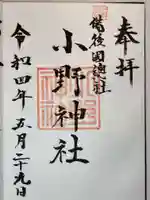 奉拝
備後國總社
小野神社
令和四年五月二十九日